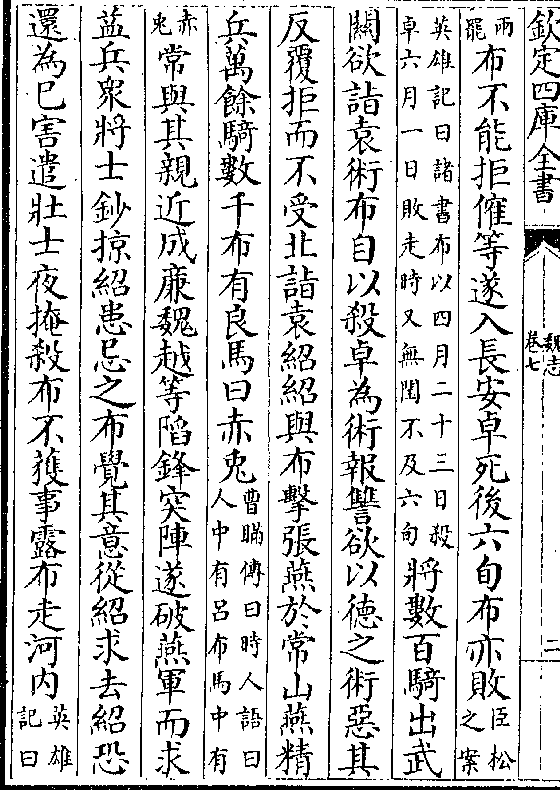 欽定四庫全書
魏志
卷七
三
兩
罷
布不能拒傕等遂入長安卓死後六旬布亦敗
臣松
之案
英雄記曰諸書布以四月二十三日殺
卓六月一日敗走時又無閏不及六旬
將數百騎出武
關欲詣袁術布自以殺卓為術報讐欲以德之術惡其
反覆拒而不受北詣袁紹紹與布擊張燕於常山燕精
兵萬餘騎數千布有良馬曰赤兎
曹瞞傳曰時人語曰
人中有呂布馬中有
赤
兎
常與其親近成廉魏越等陷鋒突陣遂破燕軍而求
益兵衆將士鈔掠紹患忌之布覺其意從紹求去紹恐
還為已害遣壯士夜掩殺布不獲事露布走河内
英雄
記曰